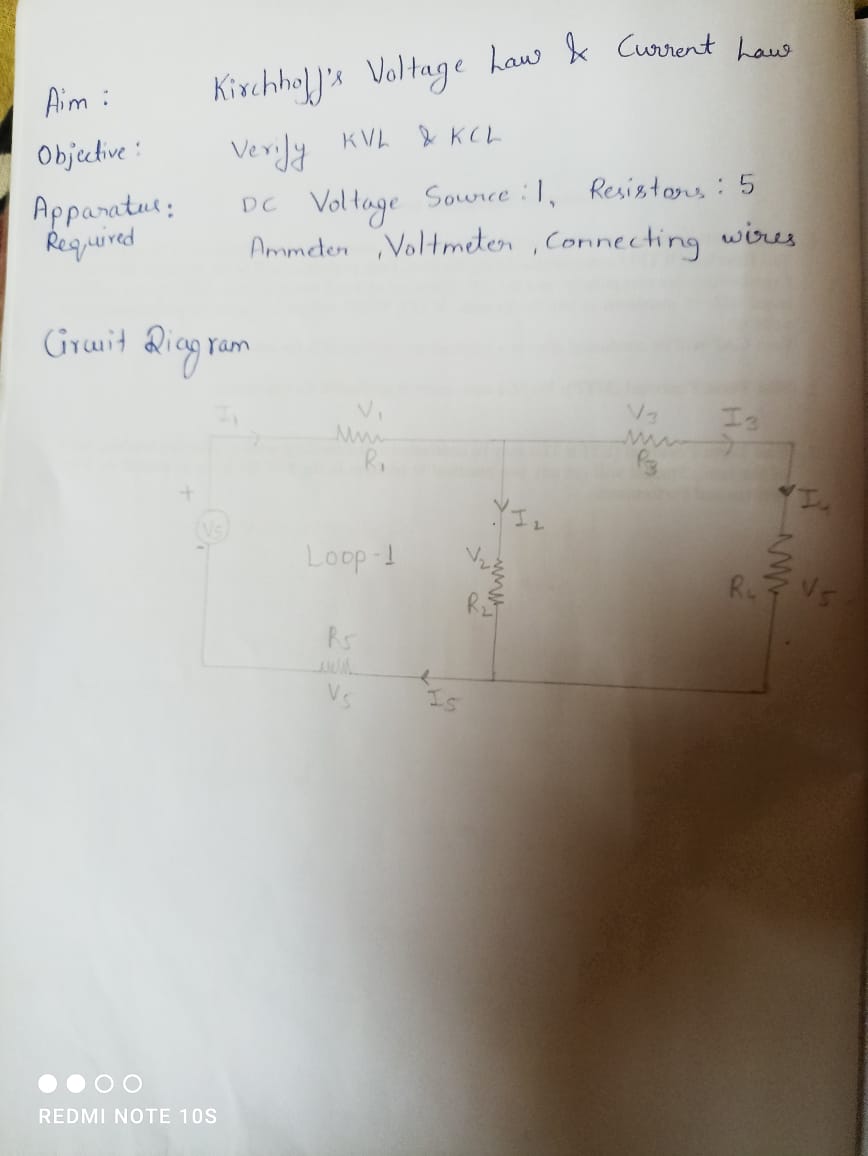 Aim : Kirchhoff's Voltage Law & Current Law
Objective : Verify KVL & KCL
Apparatus : DC Voltage Source : 1, Resistors : 5
Required Ammeter , Voltmeter , Connecting wires
Circuit Diagram
I1 V1 V3 I3
R1 R3
+ I4
Vs I2
-
Loop-1 V2 R4 V5
R2
R5
V5 I5
REDMI NOTE 10S